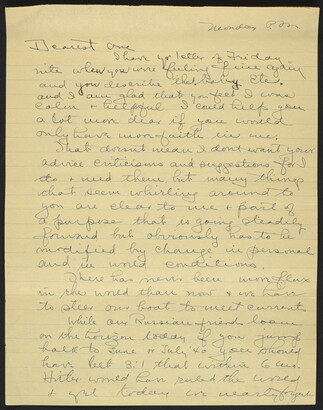 Monday P.M.
Dearest one
I have yr letter of Friday
nite when you were feeling fine again
and you describe the baby, Etc.
and I am glad that you feel I was
calm + helpful I could help you
a lot more dear if you would
only have more faith in me.
That doesnt mean I dont want your
advice criticisms and suggestions for I
do + need them but many things
that seem whirling around to
you are clear to me + part of
a purpose that is going steadily
forward but obviously has to be
modified by change in personal
and in world conditions.
There has never been more flux
in the world than now + we have
to steer our boat to meet currents
While our Russian friends loom
on the horizon today if you jump
back to June or July 40 you should
have bet 3:1 that within 6 mo.
Hitler would have ruled the world
+ yet today